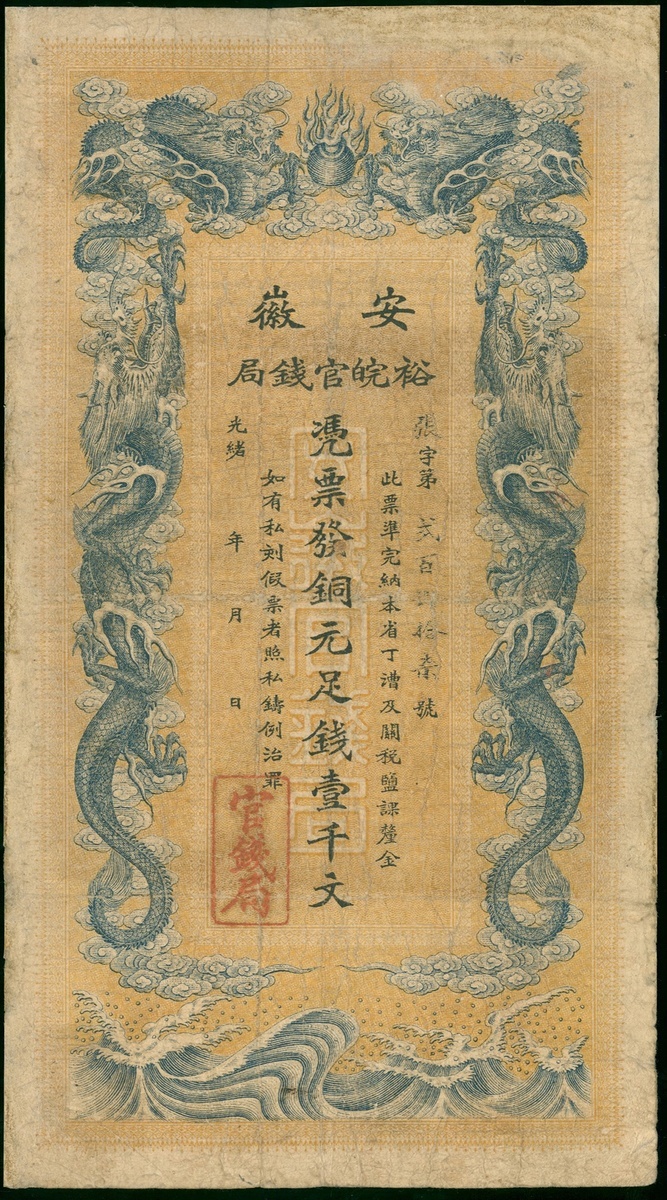 安徽
裕皖官錢局
張字第弍百拾柒號
此票準完納本省丁漕及關稅鹽課釐金
凴票發銅元足錢壹千文
如有私刻假票者照私鑄例治罪
光緒 年 月 日
官錢局